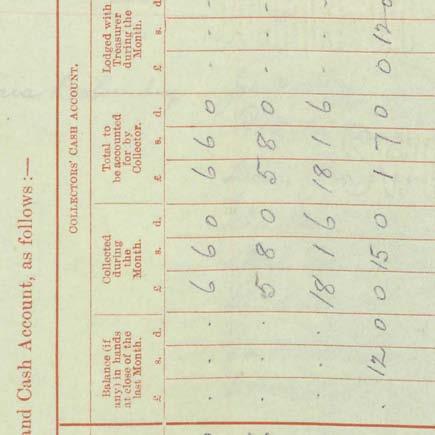 and Cash Account, as follows :—
COLLECTORS' CASH ACCOUNT.
Balance (if any) in hands at close of the last Month.
Collected during the Month.
Total to be accounted for by Collector.
Lodged with Treasurer during the Month.
£ s. d. £ s. d. £ s. d. £ s. d.
. . . 6 6 0 6 6 0 - -
. . . 5 8 0 5 8 0 - -
. . . 18 1 6 18 1 6 - -
. 12 0 0 15 0 1 7 0 0 12 0